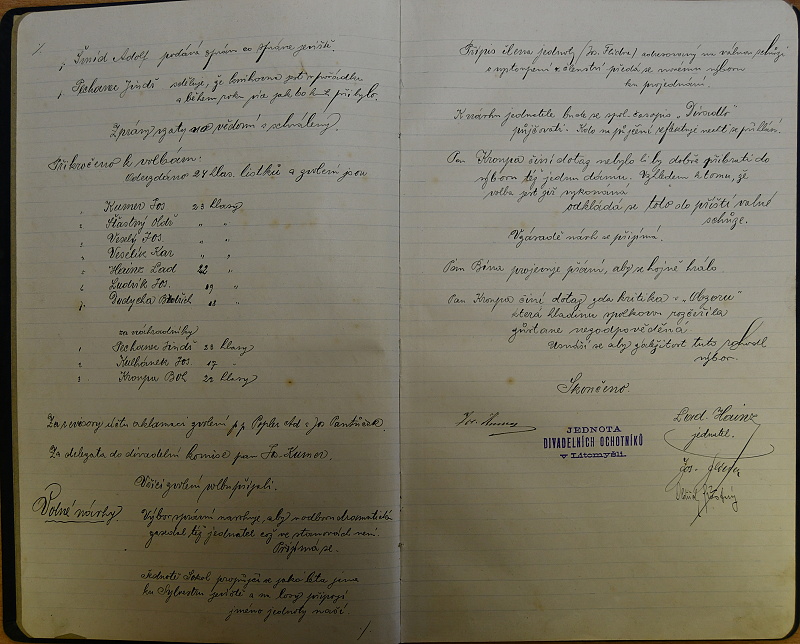 Šmíd Adolf podává zprávu co správce jeviště.
Pechanec Jindř. sděluje, že knihovna jest v pořádku
a během roku více jak 60 k. přibylo.
Zprávy vzaty na vědomí a schváleny.
Přikročeno k volbám:
Odevzdáno 24 hlas. lístků a zvoleni jsou
1. Kumer Jos. 23 hlasy
2. Šťastný Oldř. " "
3. Veselý Jos. " "
4. Veselík Kar. " "
5. Hainz Lad. 22 "
6. Ludvík Jos. 19 "
7. Dudycha 18 "
za náhradníky
1. Pechanec Jindř. 23 hlasy
2. Kulhánek Jos. 17
3. Kroupa Boh. 22 hlasy
Za revisory účtů aklamací zvoleni p.p. Popler Ad. a Jos. Pantůček.
Za delegáta do divadelní komise pan Jos. Kumer.
Všici zvolení volbu přijali.
Volné návrhy.
Výbor správní navrhuje, aby v odboru dramatickém
zasedal též jednatel což ve stanovách není.
Přijímá se.
Jednotě Sokol propůjčí se jako léta jiná
ku Sylvestru jeviště a na losy připojí
jméno jednoty naší
Přípis člena jednoty (Jos. Flídra) adresovaný na valnou schůzi
o vystoupení z členství předá se novému výboru
ku projednání.
K návrhu jednatele bude se spol. časopis "Divadlo"
půjčovati. Kdo na půjčení reflektuje nechť se přihlásí.
Pan Kroupa činí dotaz nebylo li by dobře přibrati do
výboru též jednu dámu. Vzhledem k tomu, že
volba jest již vykonána
odkládá se toto do příští valné
schůze.
návrh se přijímá.
Pan Bína projevuje přání, aby se hojně hrálo.
Pan Kroupa činí dotaz zda kritika v "Obzoru"
která hladinu spolkovou rozčeřila
zůstane nezodpověděna
Usnáší se aby záležitost tuto rozhodl
výbor.
Skončeno.
JEDNOTA
DIVADELNÍCH OCHOTNÍKŮ
v Litomyšli.
Lad. Hainz
jednatel.